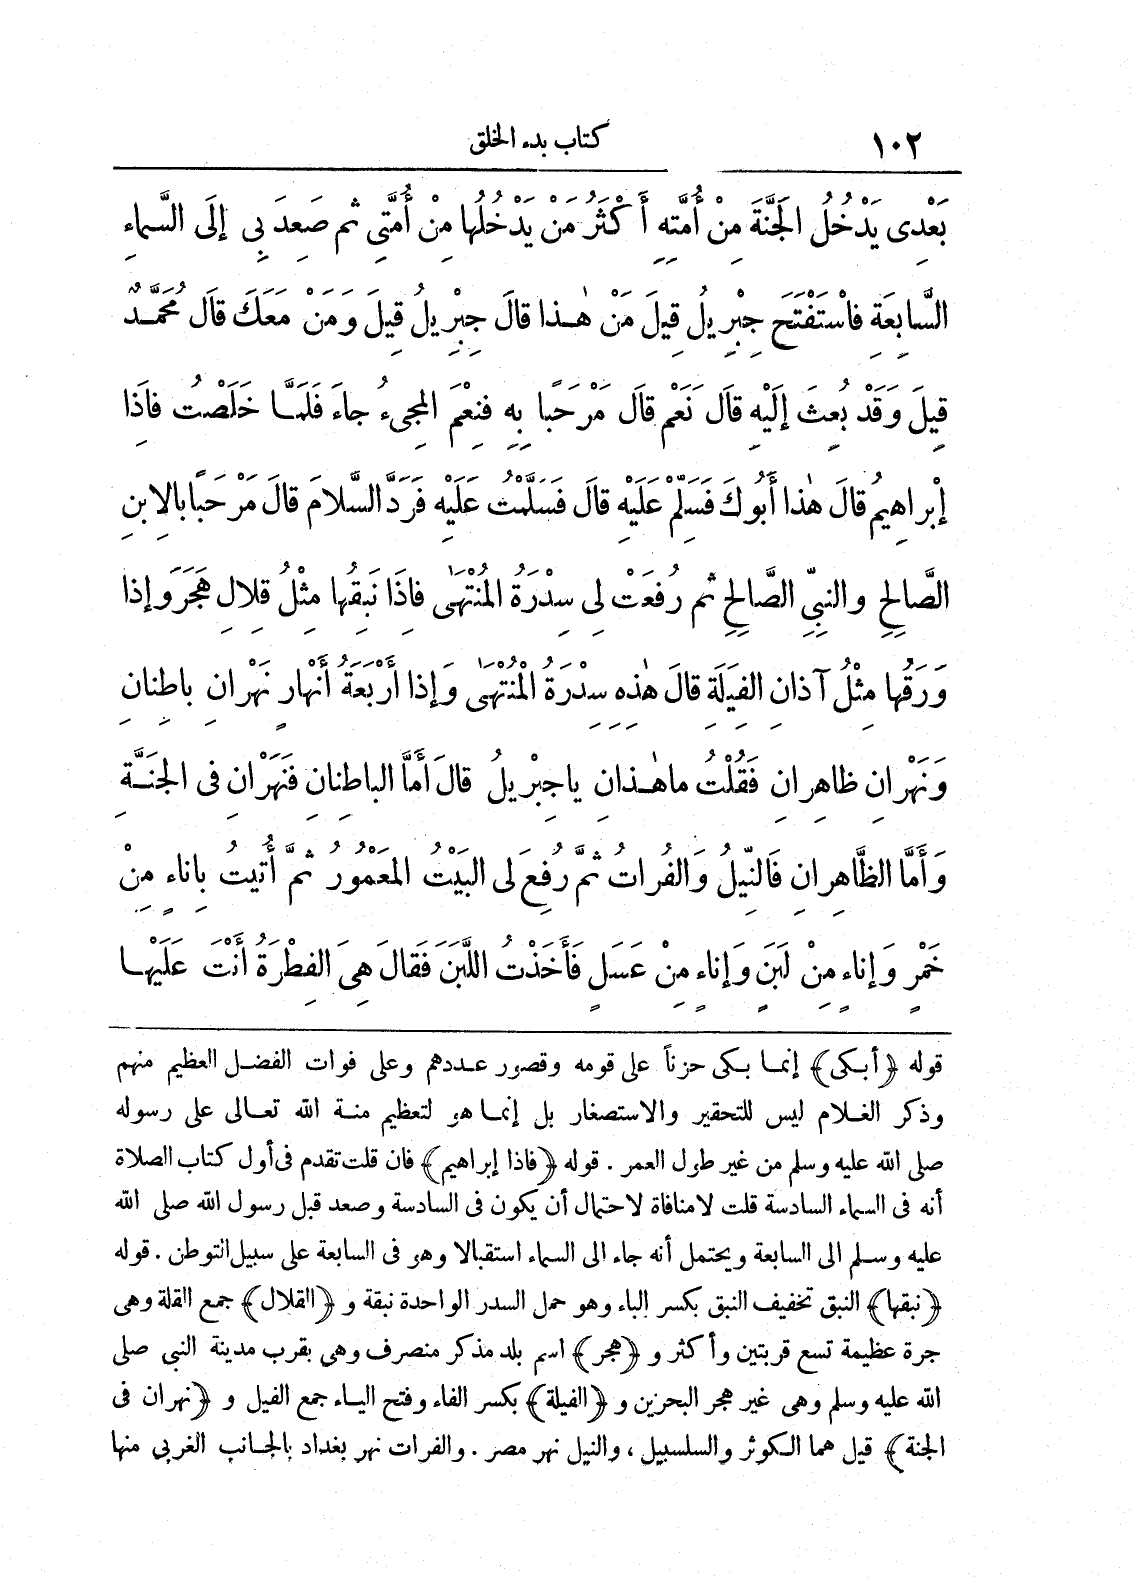 ١٠٢ كتاب بدء الخلق
بَعْدِى يَدْخُلُ الجَنَّةَ مِنْ أُمَّتِهِ أَكْثَرُ مَنْ يَدْخُلُها مِنْ أُمَّتِي ثم صَعِدَ بِى إلَى السَّماءِ
السَّابِعَةِ فاسْتَفْتَحَ جِبْرِيلُ قِيلَ مَنْ هٰذا قالَ جِبْرِيلُ قِيلَ وَمَنْ مَعَكَ قال مُحَمَّدٌ
قِيلَ وَقَدْ بُعِثَ إلَيْهِ قالَ نَعَمْ قالَ مَرْحَبًا بِهِ فَنِعْمَ المَجِىءُ جاءَ فَلَمَّا خَلَصْتُ فإذَا
إبْراهِيمُ قالَ هٰذا أَبُوكَ فَسَلِّمْ عَلَيْهِ قالَ فَسَلَّمْتُ عَلَيْهِ فَرَدَّ السَّلامَ قالَ مَرْحَبًا بالابنِ
الصَّالِحِ والنبِيِّ الصَّالِحِ ثم رُفِعَتْ لِى سِدْرَةُ المُنْتَهَى فإِذَا نَبِقُها مِثْلُ قِلالِ هَجَرَ وإذا
وَرَقُها مِثْلُ آذانِ الفِيَلَةِ قالَ هٰذِهِ سِدْرَةُ المُنْتَهَى وَإذا أَرْبَعَةُ أَنْهارٍ نَهْرانِ باطِنانِ
وَنَهْرانِ ظاهِرانِ فَقُلْتُ ماهٰذانِ ياجِبْرِيلُ قالَ أَمَّا الباطِنانِ فَنَهْرَانِ فى الجَنَّةِ
وَأَمَّا الظَّاهِرانِ فَالنِّيلُ وَالفُراتُ ثُمَّ رُفِعَ لى البَيْتُ المَعْمُورُ ثُمَّ أُتيتُ بإناءٍ مِنْ
خَمْرٍ وَإناءٍ مِنْ لَبَنٍ وَإناءٍ مِنْ عَسَلٍ فَأَخَذْتُ اللَّبَنَ فَقالَ هِىَ الفِطْرَةُ أَنْتَ عَلَيْها
قوله ﴿أبكى﴾ إنما بكى حزناً على قومه وقصور عددهم وعلى فوات الفضل العظيم منهم
وذكر الغلام ليس للتحقير والاستصغار بل إنما هو لتعظيم منة الله تعالى على رسوله
صلى الله عليه وسلم من غير طول العمر . قوله ﴿فاذا إبراهيم﴾ فان قلت تقدم فى أول كتاب الصلاة
أنه فى السماء السادسة قلت لا منافاة لاحتمال أن يكون فى السادسة وصعد قبل رسول الله صلى الله
عليه وسلم الى السابعة ويحتمل أنه جاء الى السماء استقبالا وهو فى السابعة على سبيل التوطن . قوله
﴿نبقها﴾ النبق تخفيف النبق بكسر الباء وهو حمل السدر الواحدة نبقة و ﴿القلال﴾ جمع القلة وهى
جرة عظيمة تسع قربتين وأكثر و ﴿هجر﴾ اسم بلد مذكر منصرف وهى بقرب مدينة النبى صلى
الله عليه وسلم وهى غير هجر البحرين و ﴿الفيلة﴾ بكسر الفاء وفتح الياء جمع الفيل و ﴿نهران فى
الجنة﴾ قيل هما الكوثر والسلسبيل ، والنيل نهر مصر . والفرات نهر بغداد بالجانب الغربي منها